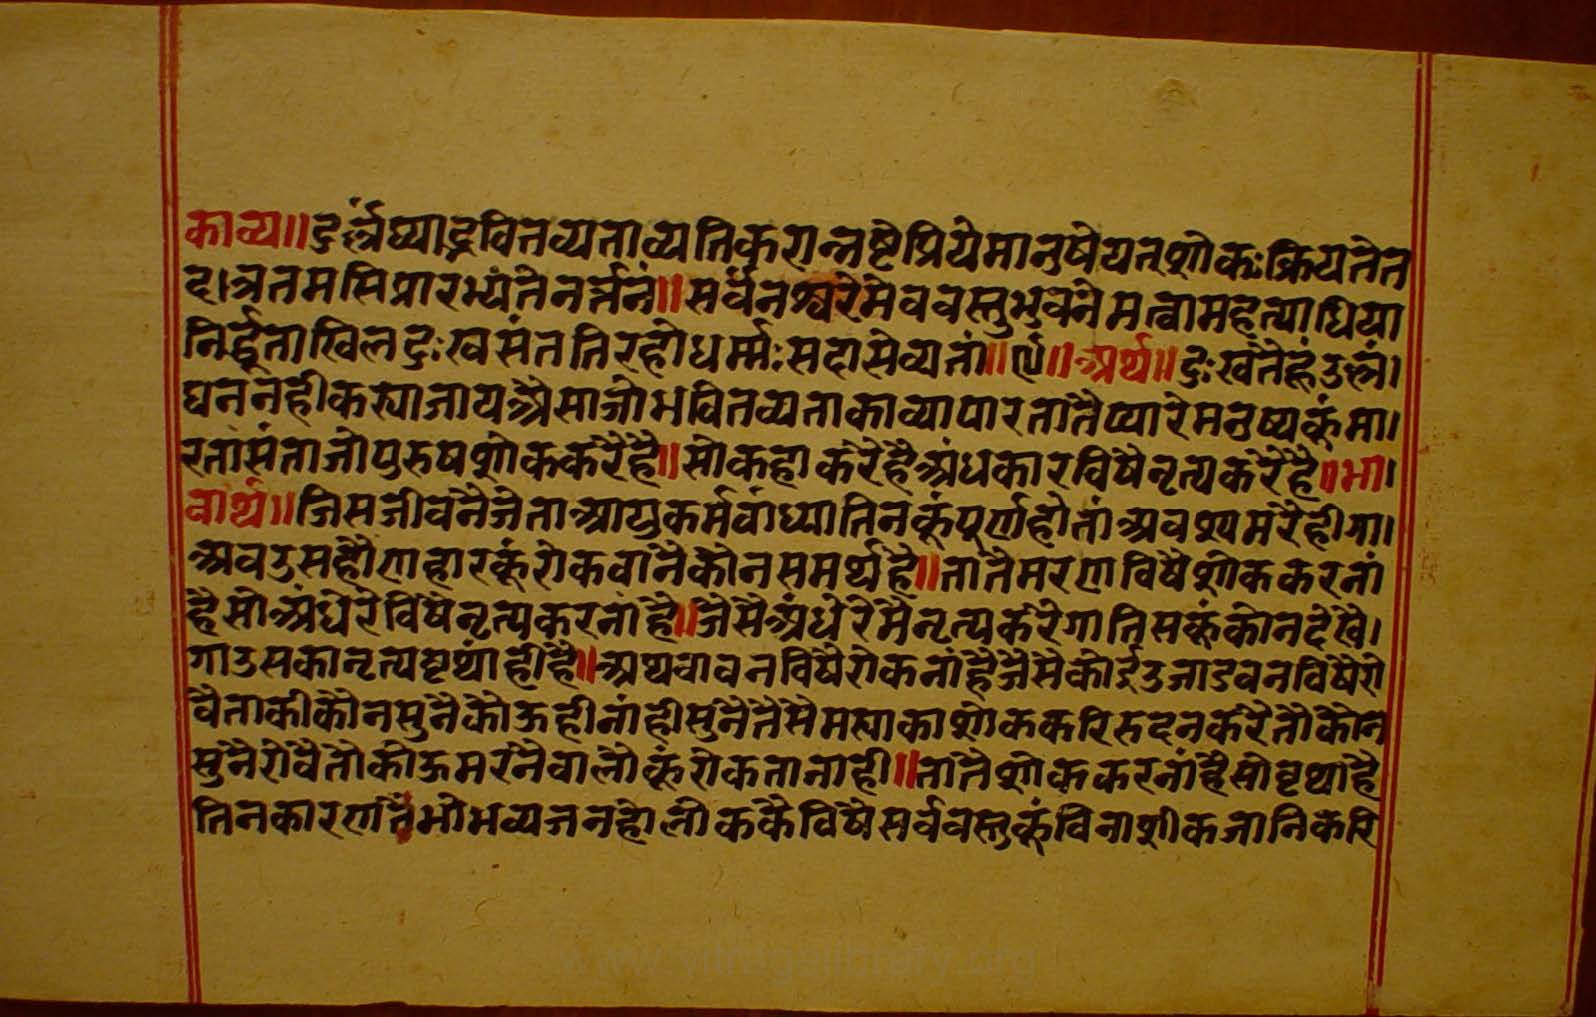 काव्य॥दुर्ल्लंघ्याद्भवितव्यताव्यतिकरान्नष्टेप्रियेमानुषेयत्शोकःक्रियतेत
दात्रतमसिप्रारभ्यंतेनर्त्तनं॥सर्वंनश्वरमेववस्तुभुवनेमत्वामहत्याधिया
निर्द्धूताखिलदुःखसंततिरहोधर्म्मःसदासेव्यतां॥९॥अर्थ॥दुःखतेंहूंउल्लं।
घननहीकर्याजायअैसाजोभवितव्यताकाव्यापारतातैप्यारेमनुष्यकूंमा।
रतासंताजोपुरुषशोककरैहै॥सोकहाकरेहैअंधकारविषैनृत्यकरैहै॥भा।
वार्थ॥जिसजीवनैजेताआयुकर्मबांध्यातिनकूंपूर्णहोतांअवश्यमरैहीगा।
अबउसहौणहारकूंरोकवांनैकौनसमर्थहै॥तातैमरणविषैशोककरनां
हैसोअंधेरेविषैनृत्यकरनांहै॥जैसैअंधेरेमैनृत्यकरेगातिसकूंकोनदेखै।
गाउसकानृत्यवृथांहीहै॥अथवावनविषैरोकनांहैजैसैकोईउजाडवनविषैरो
वैताकीकौनसुनैकोऊहीनांहीसुंनैतैसैमर्याकाशोककरिरुदनकरैतौकोन
सुंनैरोवैतौकोऊमरंनैवालोकूंरोकतानाही॥तातैशोककरनांहैसोवृथाहै
तिनकारणतैभोभव्यजनहोलोककैविषैसर्ववस्तुकूंविनाशीकजानिकरि
www.vitragelibrary.org